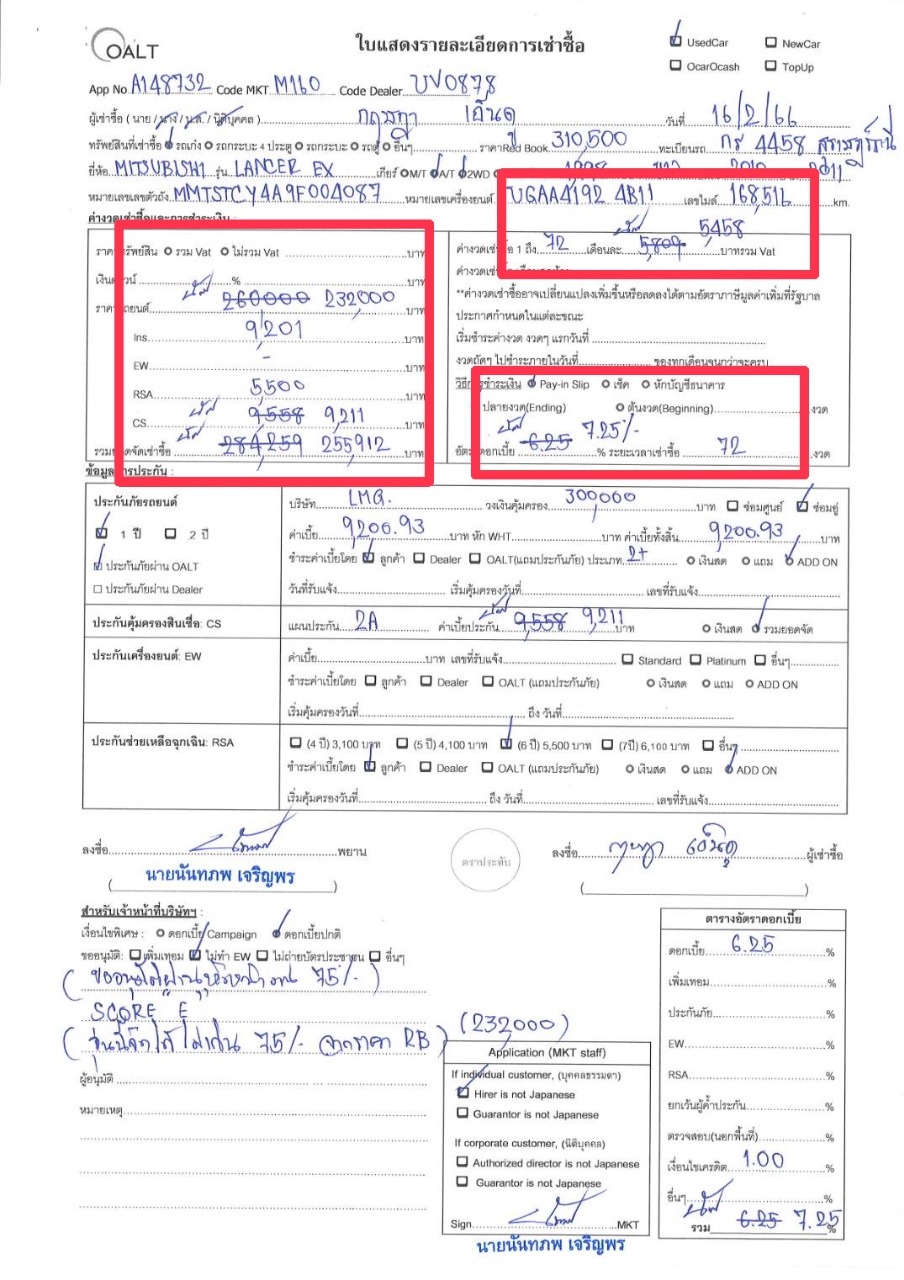 OALT
ใบแสดงรายละเอียดการเช่าซื้อ
UsedCar NewCar
OcarOcash TopUp
App No. A148732 Code MKT M160 Code Dealer UV0878
ผู้เช่าซื้อ ( นาย / นาง / น.ส. / นิติบุคคล ) วันที่ 16/2/66
ทรัพย์สินที่เช่าซื้อ รถเก๋ง รถกระบะ 4 ประตู รถกระบะ รถตู้ อื่นๆ ราคาRed Book 310,500 ทะเบียนรถ กร 4458 สุราษฎร์ธานี
ยี่ห้อ MITSUBISHI รุ่น LANCER EX เกียร์ M/T A/T 2WD 2011
หมายเลขเลขตัวถัง MMTSTCY4A9F004087 หมายเลขเครื่องยนต์ UGAA4192 4B11 เลขไมล์ 168,516 km.
ค่างวดเช่าซื้อและการชำระเงิน :
ราคาทรัพย์สิน รวม Vat ไม่รวม Vat บาท
เงินดาวน์ % บาท
ราคารถยนต์ 260000 232000 บาท
Ins 9,201 บาท
EW - บาท
RSA 5,500 บาท
CS 9,558 9,211 บาท
รวมยอดจัดเช่าซื้อ 284,259 255,912 บาท
ค่างวดเช่าซื้อ 1 ถึง 72 เดือนละ 5,809 5,458 บาทรวม Vat
**ค่างวดเช่าซื้ออาจเปลี่ยนแปลงเพิ่มขึ้นหรือลดลงได้ตามอัตราภาษีมูลค่าเพิ่มที่รัฐบาล
ประกาศกำหนดในแต่ละขณะ
เริ่มชำระค่างวด งวดๆ แรกวันที่
งวดถัดๆ ไปชำระภายในวันที่ ของทุกเดือนจนกว่าจะครบ
วิธีการชำระเงิน Pay-in Slip เช็ค หักบัญชีธนาคาร
ปลายงวด(Ending) ต้นงวด(Beginning) งวด
อัตราดอกเบี้ย 6.25 7.25% % ระยะเวลาเช่าซื้อ 72 งวด
ข้อมูลการประกัน :
ประกันภัยรถยนต์
1 ปี 2 ปี
ประกันภัยผ่าน OALT
ประกันภัยผ่าน Dealer
บริษัท LMG. วงเงินคุ้มครอง 300,000 บาท ซ่อมศูนย์ ซ่อมอู่
ค่าเบี้ย 9,200.93 บาท หัก WHT บาท ค่าเบี้ยทั้งสิ้น 9,200.93 บาท
ชำระค่าเบี้ยโดย ลูกค้า Dealer OALT(แถมประกันภัย) ประเภท 2+ เงินสด แถม ADD ON
วันที่รับแจ้ง เริ่มคุ้มครองวันที่ เลขที่รับแจ้ง
ประกันคุ้มครองสินเชื่อ: CS
แผนประกัน 2A ค่าเบี้ยประกัน 9,558 9,211 บาท เงินสด รวมยอดจัด
ประกันเครื่องยนต์: EW
ค่าเบี้ย บาท เลขที่รับแจ้ง Standard Platinum อื่นๆ
ชำระค่าเบี้ยโดย ลูกค้า Dealer OALT (แถมประกันภัย) เงินสด แถม ADD ON
เริ่มคุ้มครองวันที่ ถึง วันที่
ประกันช่วยเหลือฉุกเฉิน: RSA
(4 ปี) 3,100 บาท (5 ปี) 4,100 บาท (6 ปี) 5,500 บาท (7ปี) 6,100 บาท อื่นๆ
ชำระค่าเบี้ยโดย ลูกค้า Dealer OALT (แถมประกันภัย) เงินสด แถม ADD ON
เริ่มคุ้มครองวันที่ ถึง วันที่ เลขที่รับแจ้ง
ลงชื่อ พยาน
นายนันทภพ เจริญพร
ตราประทับ
ลงชื่อ ผู้เช่าซื้อ
สำหรับเจ้าหน้าที่บริษัทฯ :
เงื่อนไขพิเศษ : ดอกเบี้ย Campaign ดอกเบี้ยปกติ
ขออนุมัติ: เพิ่มเทอม ไม่ทำ EW ไม่ถ่ายบัตรประชาชน อื่นๆ
SCORE E
(รุ่นนี้จัดได้ไม่เกิน 75% จากราคา RB) (232,000)
ผู้อนุมัติ
หมายเหตุ
Application (MKT staff)
If individual customer, (บุคคลธรรมดา)
Hirer is not Japanese
Guarantor is not Japanese
If corporate customer, (นิติบุคคล)
Authorized director is not Japanese
Guarantor is not Japanese
Sign MKT
นายนันทภพ เจริญพร
ตารางอัตราดอกเบี้ย
ดอกเบี้ย 6.25 %
เพิ่มเทอม %
ประกันภัย %
EW %
RSA %
ยกเว้นผู้ค้ำประกัน %
ตรวจสอบ(นอกพื้นที่) %
เงื่อนไขเครดิต 1.00 %
อื่นๆ %
รวม 6.25 7.25 %